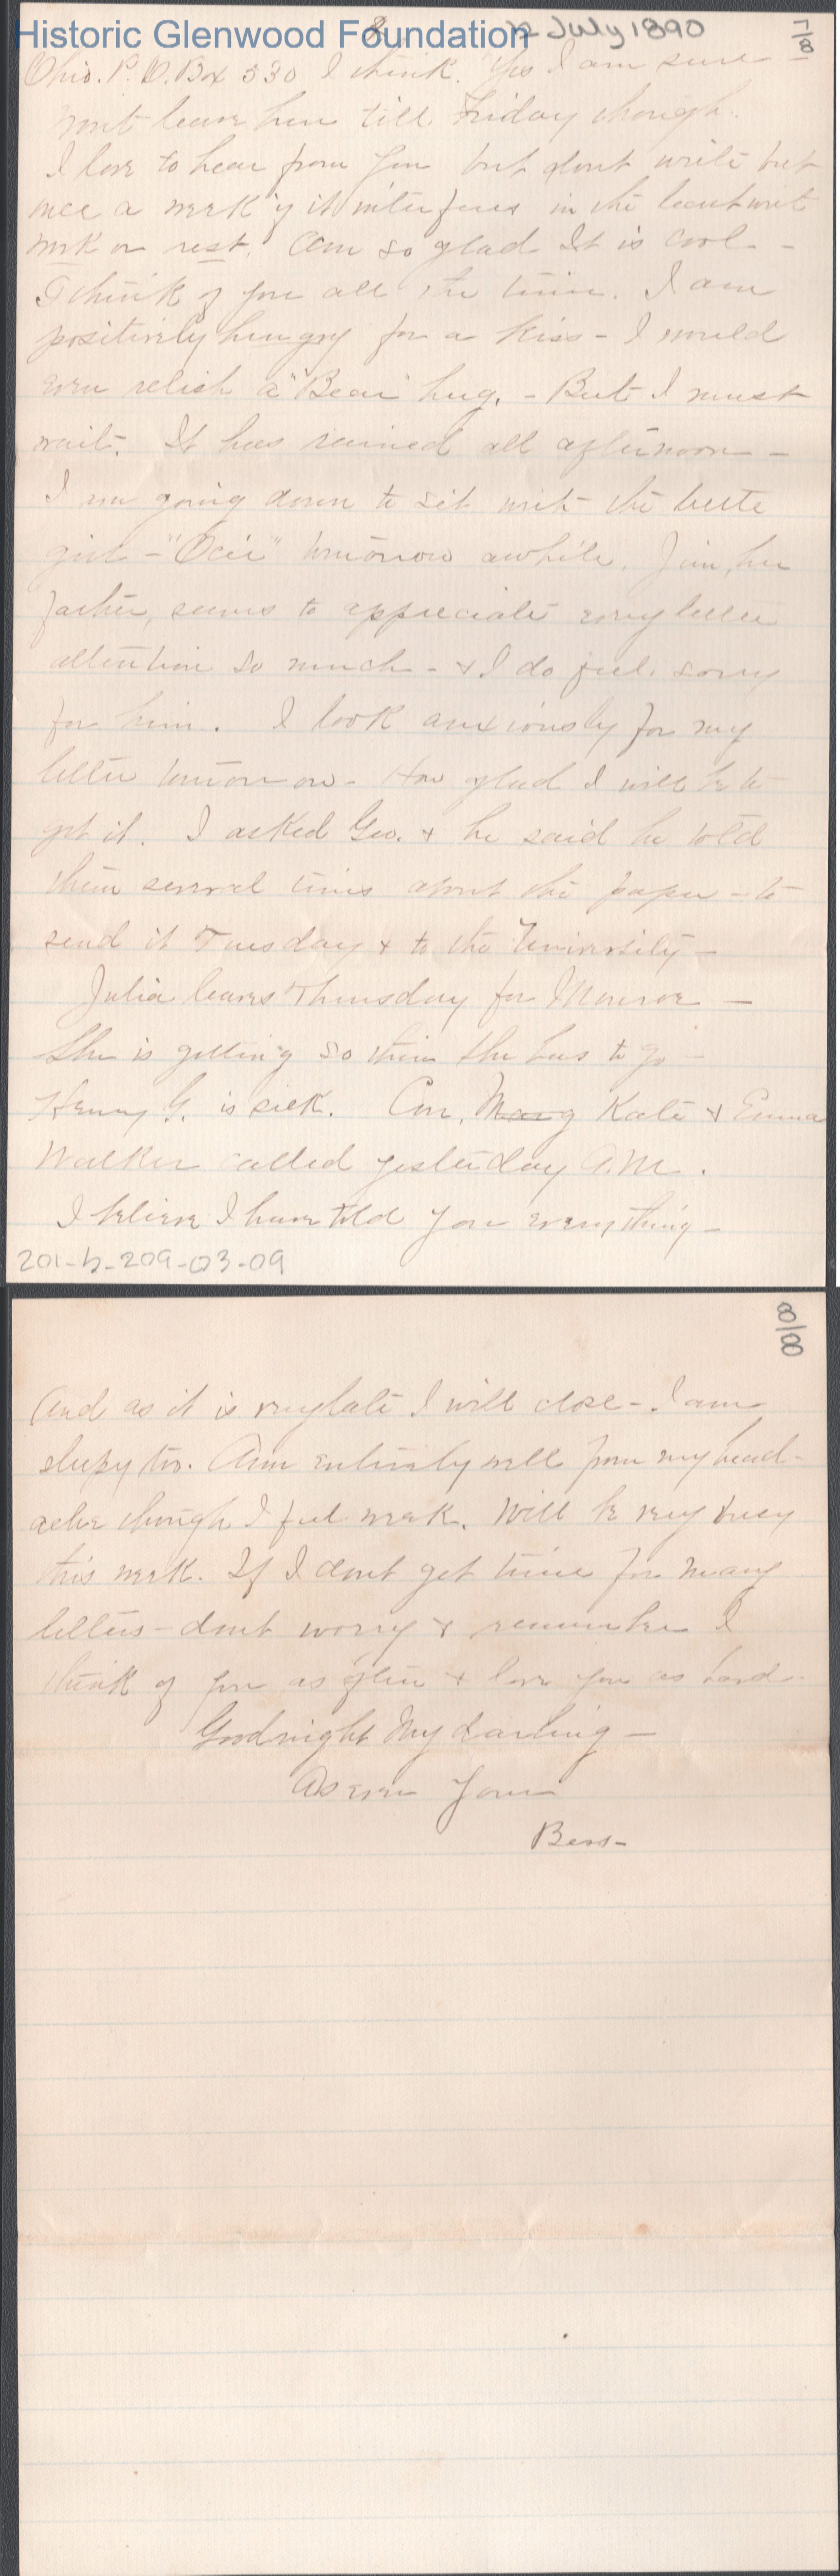 Historic Glenwood Foundation
8
12 July 1890
7/8
Ohio. P. O. Box 530 I think. Yes I am sure
Wont leave here till Friday though.
I love to hear from you but dont write but
once a week if it interferes in the least with
work or rest. Am so glad it is cool -
I think of you all the time. I am
positively hungry for a kiss - I would
even relish a "Bear" hug. - But I must
wait. It has rained all afternoon -
I am going down to sit with the little
girl - "Ocie" tomorrow awhile. Jim, her
father, seems to appreciate every little
attention so much - & I do feel sorry
for him. I look anxiously for my
letter tomorrow - How glad I will be to
get it. I asked Geo. & he said he told
them several times about the paper - to
send it Tuesday & to the University -
Julia leaves Thursday for Monroe -
She is getting so thin she has to go -
Henry G. is sick. Con, Marg Kate & Emma
Walker called yesterday A.M.
I believe I have told you everything -
201-b-209-03-09
8/8
And as it is very late I will close - I am
sleepy too. Am entirely well from my head-
ache though I feel weak. Will be very busy
this week. If I dont get time for many
letters - dont worry & remember I
think of you as often & love you as hard -
Goodnight My darling -
As ever Your
Bess -